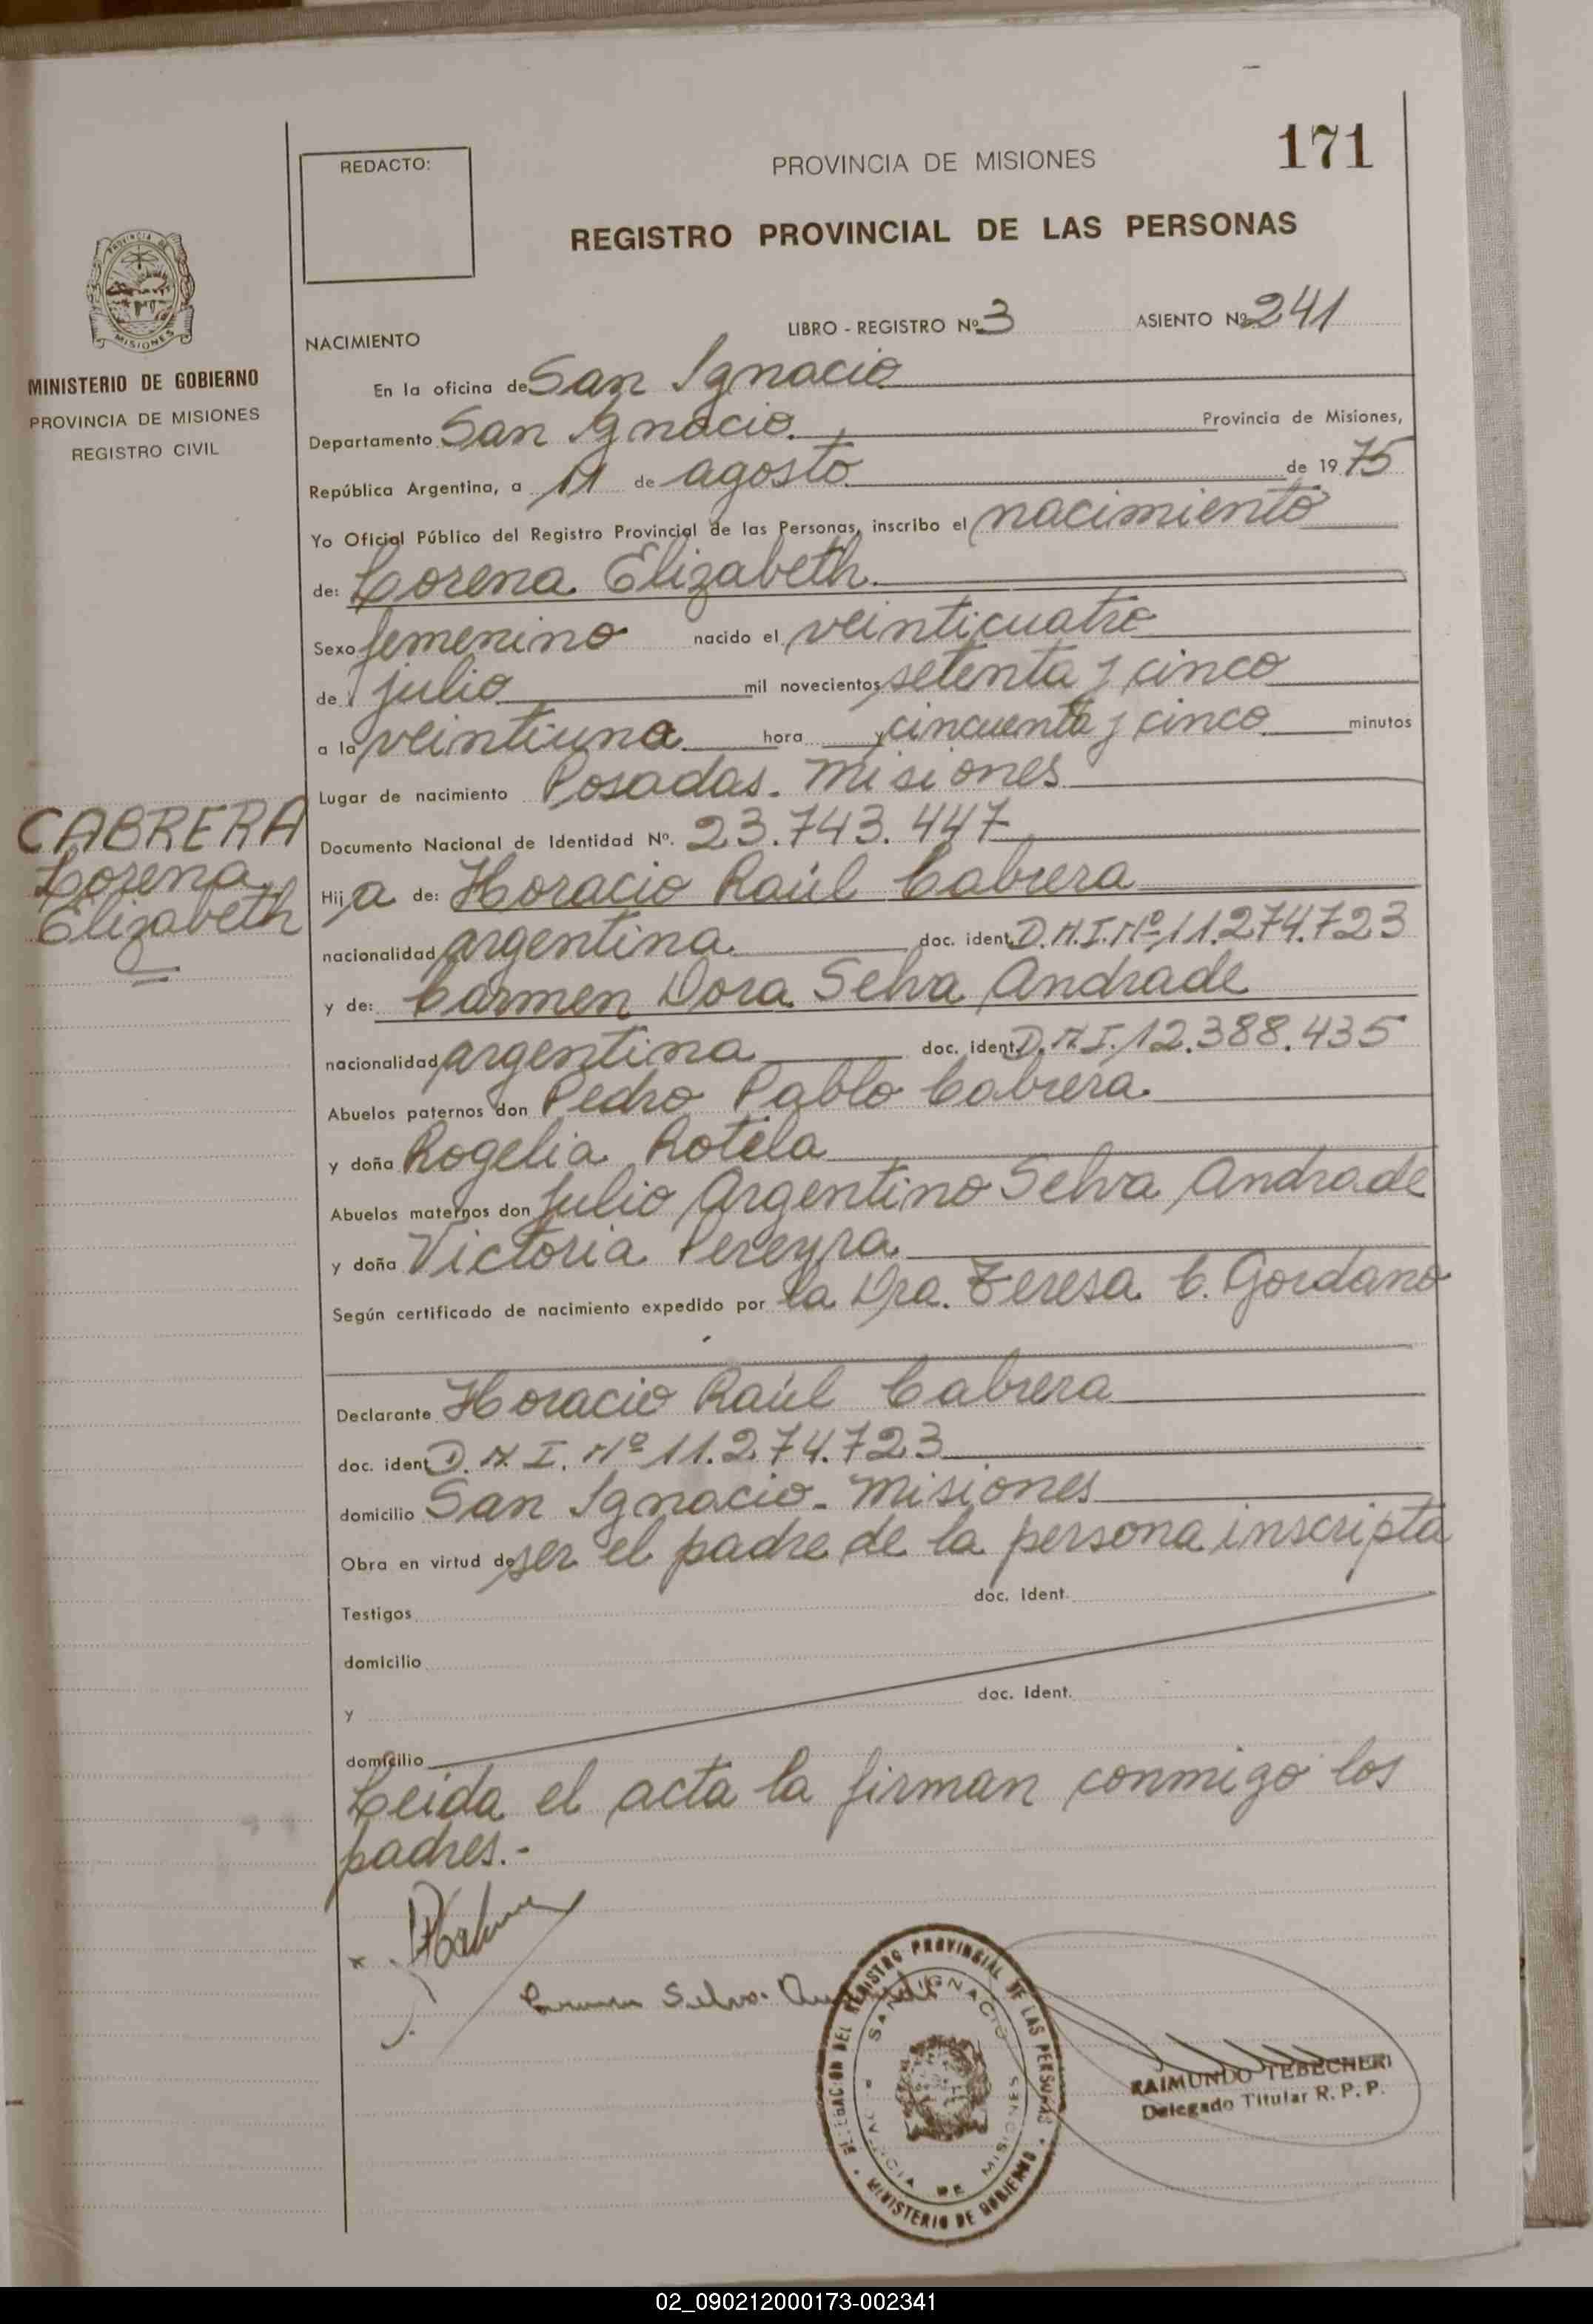 171
REDACTO:
PROVINCIA DE MISIONES
REGISTRO PROVINCIAL DE LAS PERSONAS
PROVINCIA DE
MISIONES
MINISTERIO DE GOBIERNO
PROVINCIA DE MISIONES
REGISTRO CIVIL
NACIMIENTO
LIBRO - REGISTRO Nº 3 ASIENTO Nº 241
En la oficina de San Ignacio
Departamento San Ignacio. Provincia de Misiones,
República Argentina, a 11 de agosto de 1975
Yo Oficial Público del Registro Provincial de las Personas, inscribo el nacimiento
de: Lorena Elizabeth
Sexo femenino nacido el veinticuatro
de julio mil novecientos setenta y cinco
a la veintiuna hora y cincuenta y cinco minutos
Lugar de nacimiento Posadas. Misiones
Documento Nacional de Identidad Nº. 23.743.447
CABRERA
Lorena
Elizabeth
Hija de: Horacio Raúl Cabrera
nacionalidad argentina doc. ident. D.N.I. Nº 11.274.723
y de: Carmen Dora Selva Andrade
nacionalidad argentina doc. ident. D.N.I. 12.388.435
Abuelos paternos don Pedro Pablo Cabrera
y doña Rogelia Rotela
Abuelos maternos don Julio Argentino Selva Andrade
y doña Victoria Pereyra
Según certificado de nacimiento expedido por la Dra. Teresa C. Gordano
Declarante Horacio Raúl Cabrera
doc. ident. D.N.I. Nº 11.274.723
domicilio San Ignacio - Misiones
Obra en virtud de ser el padre de la persona inscripta
Testigos doc. ident.
domicilio
y doc. ident.
domicilio
Leida el acta la firman conmigo los
padres.-
Selva
DELEGACION DEL REGISTRO PROVINCIAL DE LAS PERSONAS
SAN IGNACIO
PROVINCIA DE MISIONES
MINISTERIO DE GOBIERNO
RAIMUNDO TEBECHERI
Delegado Titular R. P. P.
02_090212000173-002341